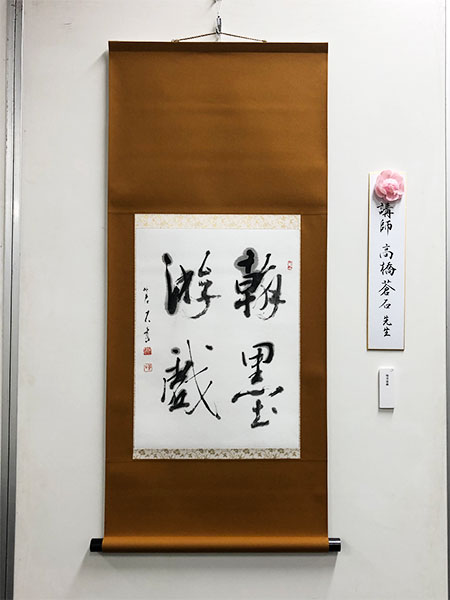 翰墨
游戯
蒼石書
講師 高橋蒼石先生